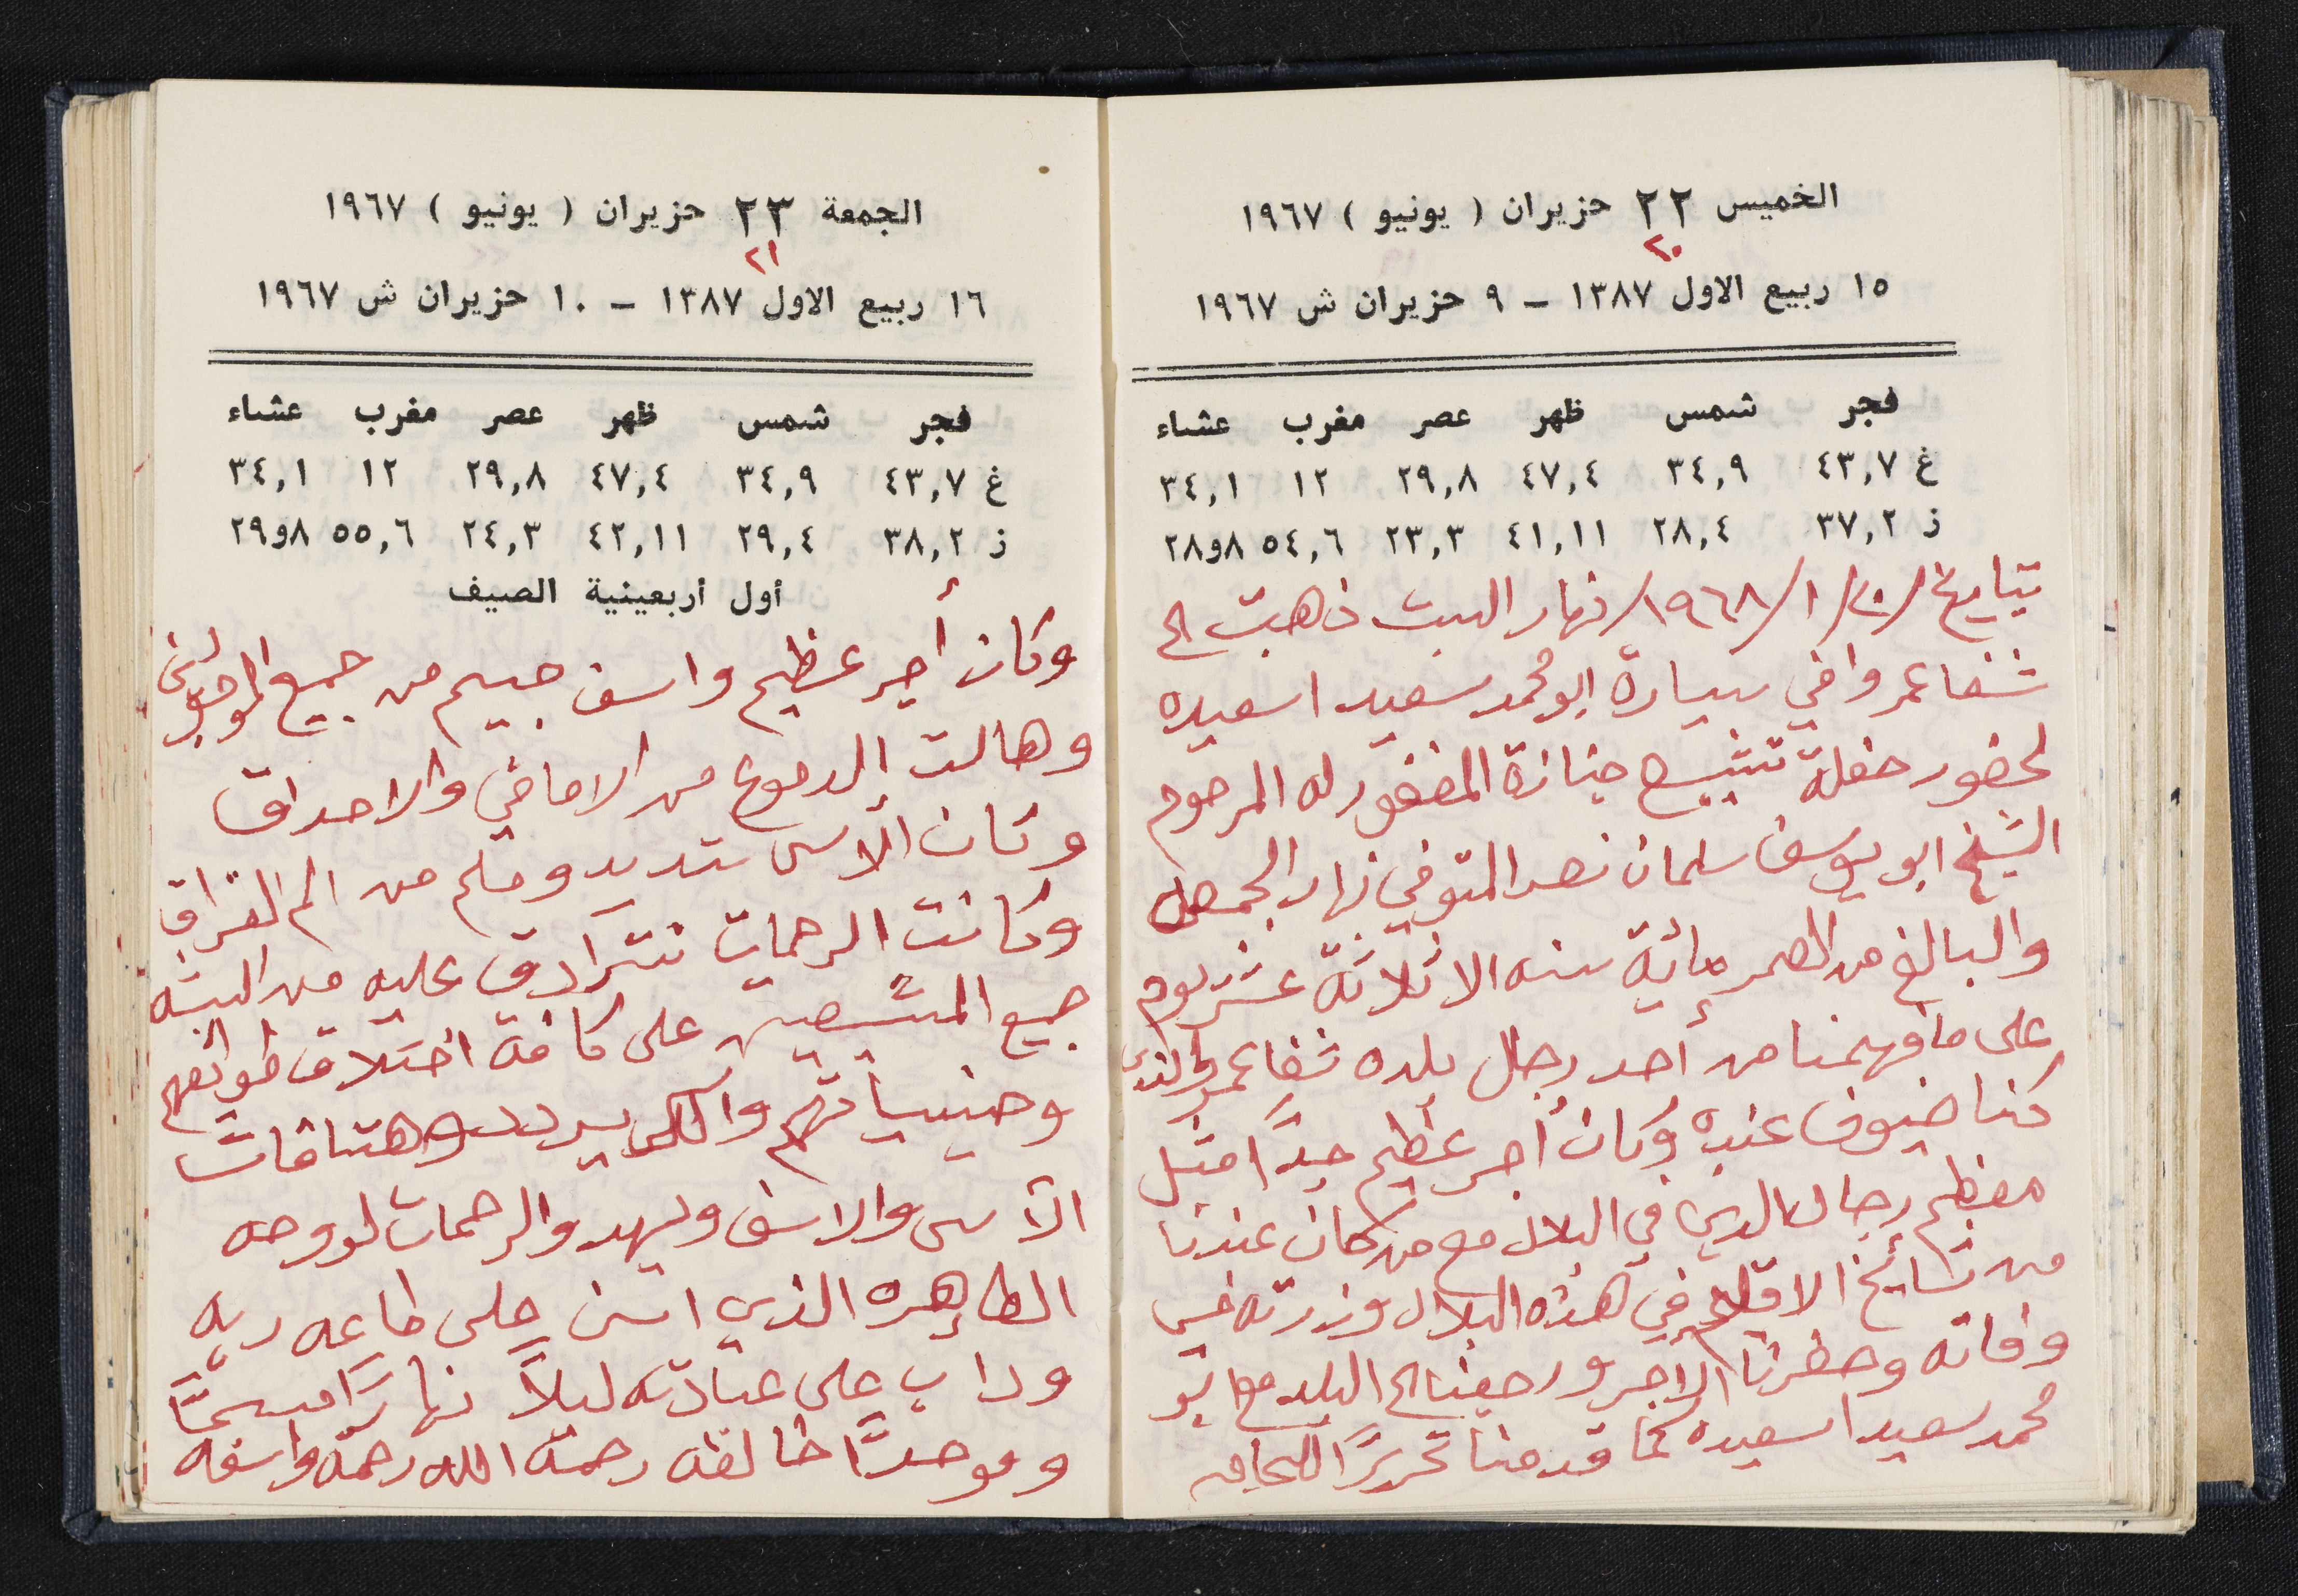 الخميس ٢٢ حزيران ( يونيو ) ١٩٦٧
٢٠
١٥ ربيع الاول ١٣٨٧ – ٩ حزيران ش ١٩٦٧
فجر شمس ظهر عصر مغرب عشاء
غ ٤٣,٧ ٣٤,٩ ٤٧,٤ ٢٩,٨ ١٢ ٣٤,١
ز ٣٧,٢ ٢٨,٤ ٤١,١١ ٢٣,٣ ٥٤,٦ ٨و٢٨
بتايخ /٢٠/١/١٩٦٨/ نهار السبت ذهبت الى
شفاعمرو في سيارة ابو محمد سعيد اسعيده
لحضور حفلة تشييع جنازة المغفور له المرحوم
الشيخ ابو يوسف سلمان نصر المتوفي نهار الجمعه
والبالغ من العمر مأية سنه الا ثلاثة عشر يوم
على ما فهمنا من أحد رجال بلده شفاعمرو الذي
كنا ضيوف عنده وكان أجر عظيم جدًا مثل
معظم رجال الدين في البلاد مع من كان عندنا
من مشايخ الاقليم في هذه البلاد وزرته
وفاته وحضرنا الاجر ورجعنا الى البلد مع ابو
محمد سعيد اسعيده كما قدمنا تحريرًا
الجمعة ٢٣ حزيران ( يونيو ) ١٩٦٧
٢١
١٦ ربيع الاول ١٣٨٧ – ١٠ حزيران ش ١٩٦٧
فجر شمس ظهر عصر مغرب عشاء
غ ٤٣,٧ ٣٤,٩ ٤٧,٤ ٢٩,٨ ١٢ ٣٤,١
ز ٣٨,٢ ٢٩,٤ ٤٢,١١ ٢٤,٣ ٥٥,٦ ٨و٢٩
أول أربعينية الصيف
وكان أجر عظيم واسف جسيم من جميع الموجودين
وهالت الدموع من الاماقي والاحداق
وكان الأسى شديد وملم من الم الفراق
وكانت الرحمات تترادف عليه من السنة
جميع المشيعين على كافة اختلاف طوائفهم
وجنسياتهم والكل يرددو هتافات
الأسى والاسف والرحمات لروحه
الطاهره الذي على طاعه ربه
وداب على عبادته ليلاً نهارًا مسبحًا
وموحدًا خالقه رحمة الله رحمة واسعه